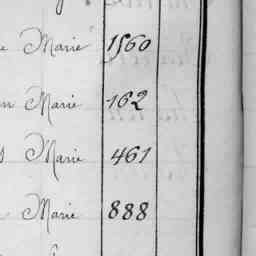 e Marie 1560
n Marie 162
s Marie 461
Marie 888